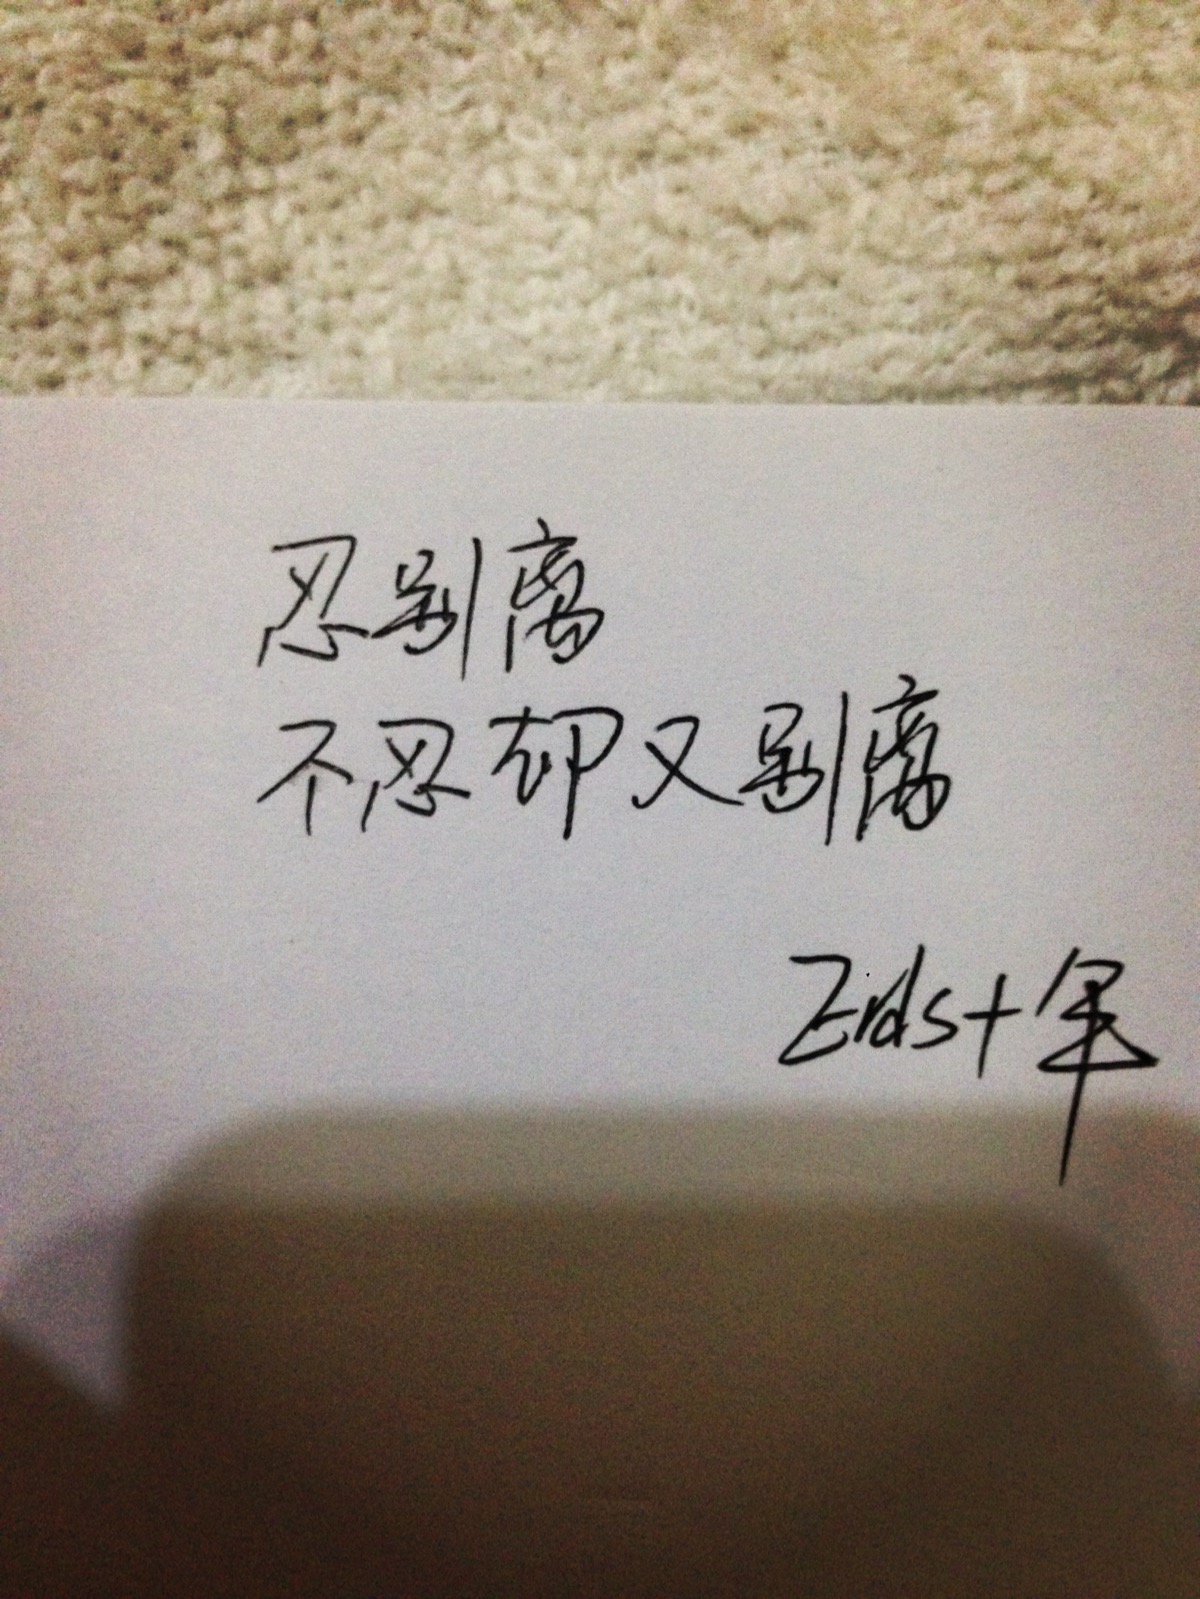 忍别离
不忍却又别离
Erds十年